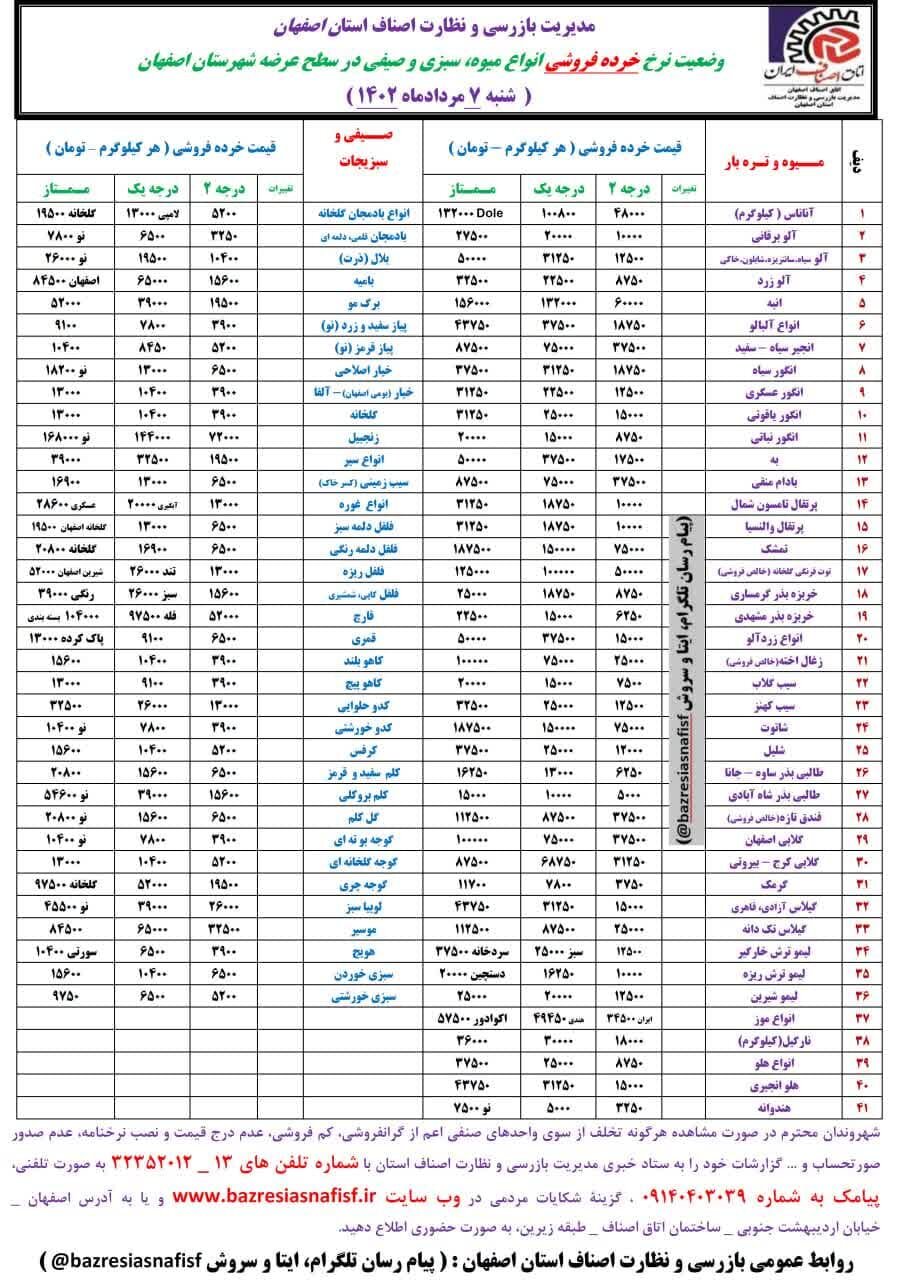 مدیریت بازرسی و نظارت اصناف استان اصفهان
وضعیت نرخ خرده فروشی انواع میوه، سبزی و صیفی در سطح عرضه شهرستان اصفهان
( شنبه ۷ مردادماه ۱۴۰۲ )
اتاق اصناف ایران
اتاق اصناف اصفهان
مدیریت بازرسی و نظارت اصناف
استان اصفهان
ردیف میوه و تره بار قیمت خرده فروشی ( هر کیلوگرم – تومان ) صیفی و سبزیجات قیمت خرده فروشی ( هر کیلوگرم – تومان )
تغییرات درجه ۲ درجه یک ممتاز تغییرات درجه ۲ درجه یک ممتاز
۱ آناناس ( کیلوگرم) ۴۸۰۰۰ ۱۰۰۸۰۰ Dole ۱۳۲۰۰۰ انواع بادمجان گلخانه ۵۲۰۰ لامپی ۱۳۰۰۰ گلخانه ۱۹۵۰۰
۲ آلو برقانی ۱۰۰۰۰ ۲۰۰۰۰ ۲۷۵۰۰ بادمجان قلمی، دلمه ای ۳۲۵۰ ۶۵۰۰ نو ۷۸۰۰
۳ آلو سیاه، سانتریزه، شابلون، خاکی ۱۲۵۰۰ ۳۱۲۵۰ ۵۰۰۰۰ بلال (ذرت) ۱۰۴۰۰ ۱۹۵۰۰ نو ۲۶۰۰۰
۴ آلو زرد ۸۷۵۰ ۲۲۵۰۰ ۳۲۵۰۰ بامیه ۱۵۶۰۰ ۶۵۰۰۰ اصفهان ۸۴۵۰۰
۵ انبه ۶۰۰۰۰ ۱۳۲۰۰۰ ۱۵۶۰۰۰ برگ مو ۱۹۵۰۰ ۳۹۰۰۰ ۵۲۰۰۰
۶ انواع آلبالو ۱۸۷۵۰ ۳۷۵۰۰ ۴۳۷۵۰ پیاز سفید و زرد (نو) ۳۹۰۰ ۷۸۰۰ ۹۱۰۰
۷ انجیر سیاه – سفید ۳۷۵۰۰ ۷۵۰۰۰ ۸۷۵۰۰ پیاز قرمز (نو) ۵۲۰۰ ۸۴۵۰ ۱۰۴۰۰
۸ انگور سیاه ۱۸۷۵۰ ۳۱۲۵۰ ۳۷۵۰۰ خیار اصلاحی ۶۵۰۰ ۱۳۰۰۰ نو ۱۸۲۰۰
۹ انگور عسکری ۱۲۵۰۰ ۲۲۵۰۰ ۳۱۲۵۰ خیار (بومی اصفهان) – آلفا ۳۹۰۰ ۱۰۴۰۰ ۱۳۰۰۰
۱۰ انگور یاقوتی ۱۵۰۰۰ ۲۵۰۰۰ ۳۱۲۵۰ گلخانه ۳۹۰۰ ۱۰۴۰۰ ۱۳۰۰۰
۱۱ انگور نباتی ۸۷۵۰ ۱۵۰۰۰ ۲۰۰۰۰ زنجبیل ۷۲۰۰۰ ۱۴۴۰۰۰ نو ۱۶۸۰۰۰
۱۲ به ۱۷۵۰۰ ۳۷۵۰۰ ۵۰۰۰۰ انواع سیر ۱۹۵۰۰ ۳۲۵۰۰ ۳۹۰۰۰
۱۳ بادام منقی ۳۷۵۰۰ ۷۵۰۰۰ ۸۷۵۰۰ سیب زمینی (کسر خاک) ۶۵۰۰ ۱۳۰۰۰ ۱۶۹۰۰
۱۴ پرتقال تامسون شمال ۱۰۰۰۰ ۱۸۷۵۰ ۳۱۲۵۰ انواع غوره ۱۳۰۰۰ آبگیری ۲۰۰۰۰ عسگری ۲۸۶۰۰
۱۵ پرتقال والنسیا ۱۰۰۰۰ ۱۸۷۵۰ ۳۱۲۵۰ فلفل دلمه سبز ۶۵۰۰ ۱۳۰۰۰ گلخانه اصفهان ۱۹۵۰۰
۱۶ تمشک ۷۵۰۰۰ ۱۵۰۰۰۰ ۱۸۷۵۰۰ فلفل دلمه رنگی ۶۵۰۰ ۱۶۹۰۰ گلخانه ۲۰۸۰۰
۱۷ توت فرنگی گلخانه (خالص فروشی) ۵۰۰۰۰ ۱۰۰۰۰۰ ۱۲۵۰۰۰ فلفل ریزه ۱۳۰۰۰ تند ۲۶۰۰۰ شیرین اصفهان ۵۲۰۰۰
۱۸ خربزه بذر گرمساری ۸۷۵۰ ۱۸۷۵۰ ۲۵۰۰۰ فلفل کاپی، شمشیری ۱۵۶۰۰ سبز ۲۶۰۰۰ رنگی ۳۹۰۰۰
۱۹ خربزه بذر مشهدی ۶۲۵۰ ۱۵۰۰۰ ۲۲۵۰۰ قارچ ۵۲۰۰۰ فله ۹۷۵۰۰ ۱۰۴۰۰۰ بسته بندی
۲۰ انواع زردآلو ۱۵۰۰۰ ۳۷۵۰۰ ۵۰۰۰۰ قمری ۶۵۰۰ ۹۱۰۰ پاک کرده ۱۳۰۰۰
۲۱ زغال اخته(خالص فروشی) ۲۵۰۰۰ ۷۵۰۰۰ ۱۰۰۰۰۰ کاهو بلند ۳۹۰۰ ۱۰۴۰۰ ۱۵۶۰۰
۲۲ سیب گلاب ۷۵۰۰ ۱۵۰۰۰ ۲۰۰۰۰ کاهو پیچ ۳۹۰۰ ۹۱۰۰ ۱۳۰۰۰
۲۳ سیب کهنز ۱۲۵۰۰ ۲۵۰۰۰ ۳۲۵۰۰ کدو حلوایی ۱۳۰۰۰ ۲۶۰۰۰ ۳۲۵۰۰
۲۴ شاتوت ۷۵۰۰۰ ۱۵۰۰۰۰ ۱۸۷۵۰۰ کدو خورشتی ۳۹۰۰ ۷۸۰۰ نو ۱۰۴۰۰
۲۵ شلیل ۱۲۰۰۰ ۲۵۰۰۰ ۳۷۵۰۰ کرفس ۵۲۰۰ ۱۰۴۰۰ ۱۵۶۰۰
۲۶ طالبی بذر ساوه – جانا ۶۲۵۰ ۱۳۰۰۰ ۱۶۲۵۰ کلم سفید و قرمز ۶۵۰۰ ۱۵۶۰۰ ۲۰۸۰۰
۲۷ طالبی بذر شاه آبادی ۵۰۰۰ ۱۰۰۰۰ ۱۵۰۰۰ کلم بروکلی ۱۵۶۰۰ ۳۹۰۰۰ نو ۵۴۶۰۰
۲۸ فندق تازه(خالص فروشی) ۳۷۵۰۰ ۸۷۵۰۰ ۱۱۲۵۰۰ گل کلم ۶۵۰۰ ۱۵۶۰۰ نو ۲۰۸۰۰
۲۹ گلابی اصفهان ۳۷۵۰۰ ۷۵۰۰۰ ۱۰۰۰۰۰ گوجه بوته ای ۳۹۰۰ ۷۸۰۰ نو ۱۰۴۰۰
۳۰ گلابی کرج – بیروتی ۳۱۲۵۰ ۶۸۷۵۰ ۸۷۵۰۰ گوجه گلخانه ای ۵۲۰۰ ۱۰۴۰۰ ۱۳۰۰۰
۳۱ گرمک ۳۷۵۰ ۷۸۰۰ ۱۱۷۰۰ گوجه چری ۱۹۵۰۰ ۵۲۰۰۰ گلخانه ۹۷۵۰۰
۳۲ گیلاس آزادی، قاهری ۱۵۰۰۰ ۳۱۲۵۰ ۴۳۷۵۰ لوبیا سبز ۲۶۰۰۰ ۳۹۰۰۰ نو ۴۵۵۰۰
۳۳ گیلاس تک دانه ۲۵۰۰۰ ۸۷۵۰۰ ۱۱۲۵۰۰ موسیر ۳۲۵۰۰ ۶۵۰۰۰ ۸۴۵۰۰
۳۴ لیمو ترش خارگیر ۱۲۵۰۰ سبز ۲۵۰۰۰ سردخانه ۳۷۵۰۰ هویج ۳۹۰۰ ۶۵۰۰ سورتی ۱۰۴۰۰
۳۵ لیمو ترش ریزه ۱۰۰۰۰ ۱۶۲۵۰ دستچین ۲۰۰۰۰ سبزی خوردن ۶۵۰۰ ۱۰۴۰۰ ۱۵۶۰۰
۳۶ لیمو شیرین ۱۲۵۰۰ ۲۰۰۰۰ ۲۵۰۰۰ سبزی خورشتی ۵۲۰۰ ۶۵۰۰ ۹۷۵۰
۳۷ انواع موز ایران ۳۴۵۰۰ هندی ۴۹۴۵۰ اکوادور ۵۷۵۰۰
۳۸ نارگیل(کیلوگرم) ۱۸۰۰۰ ۳۰۰۰۰ ۳۶۰۰۰
۳۹ انواع هلو ۸۷۵۰ ۲۵۰۰۰ ۳۷۵۰۰
۴۰ هلو انجیری ۱۵۰۰۰ ۳۱۲۵۰ ۴۳۷۵۰
۴۱ هندوانه ۳۲۵۰ ۵۰۰۰ نو ۷۵۰۰
(پیام رسان تلگرام، ایتا و سروش bazresiasnafisf@)
شهروندان محترم در صورت مشاهده هرگونه تخلف از سوی واحدهای صنفی اعم از گرانفروشی، کم فروشی، عدم درج قیمت و نصب نرخنامه، عدم صدور
صورتحساب و ... گزارشات خود را به ستاد خبری مدیریت بازرسی و نظارت اصناف استان با شماره تلفن های ۱۳ _ ۳۲۳۵۲۰۱۲ به صورت تلفنی،
پیامک به شماره ۰۹۱۴۰۴۰۳۰۳۹ ، گزینهٔ شکایات مردمی در وب سایت www.bazresiasnafisf.ir و یا به آدرس اصفهان _
خیابان اردیبهشت جنوبی _ ساختمان اتاق اصناف _ طبقه زیرین، به صورت حضوری اطلاع دهید.
روابط عمومی بازرسی و نظارت اصناف استان اصفهان : ( پیام رسان تلگرام، ایتا و سروش bazresiasnafisf@ )